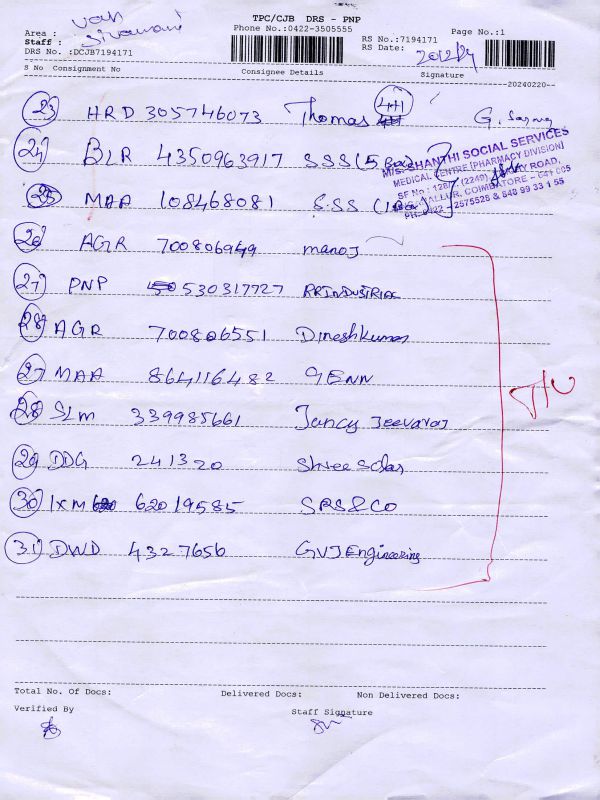 TPC/CJB DRS - PNP
Area : Van
Phone No.:0422-3505555
Page No.:1
Staff : Sivamani
RS No.:7194171
DRS No. :DCJB7194171
RS Date: 20/2/24
S No Consignment No Consignee Details Signature
20240220--
23 HRD 305746073 Thomas 441
24 BLR 4350963917 SSS (5 Box)
M/S. SHANTHI SOCIAL SERVICES
MEDICAL CENTRE [PHARMACY DIVISION]
25 MAA 108468081 S.SS (1 Box)
COIMBATORE - 641 005
PH: 0422 - 2575528 & 648 99 33 1 55
26 AGR 700806949 manoj
27 PNP 530317727 RRINDUSTRIAL
28 AGR 700806551 Dineshkumar
27 MAA 864116482 GENN
T/U
28 SLM 339985661 Jancy Jeevaraj
29 DDG 241320 Shree Solar
30 IXM 62019585 SRS & CO
31 DWD 4327656 GVJ Engineering
Total No. Of Docs: Delivered Docs: Non Delivered Docs:
Verified By Staff Signature